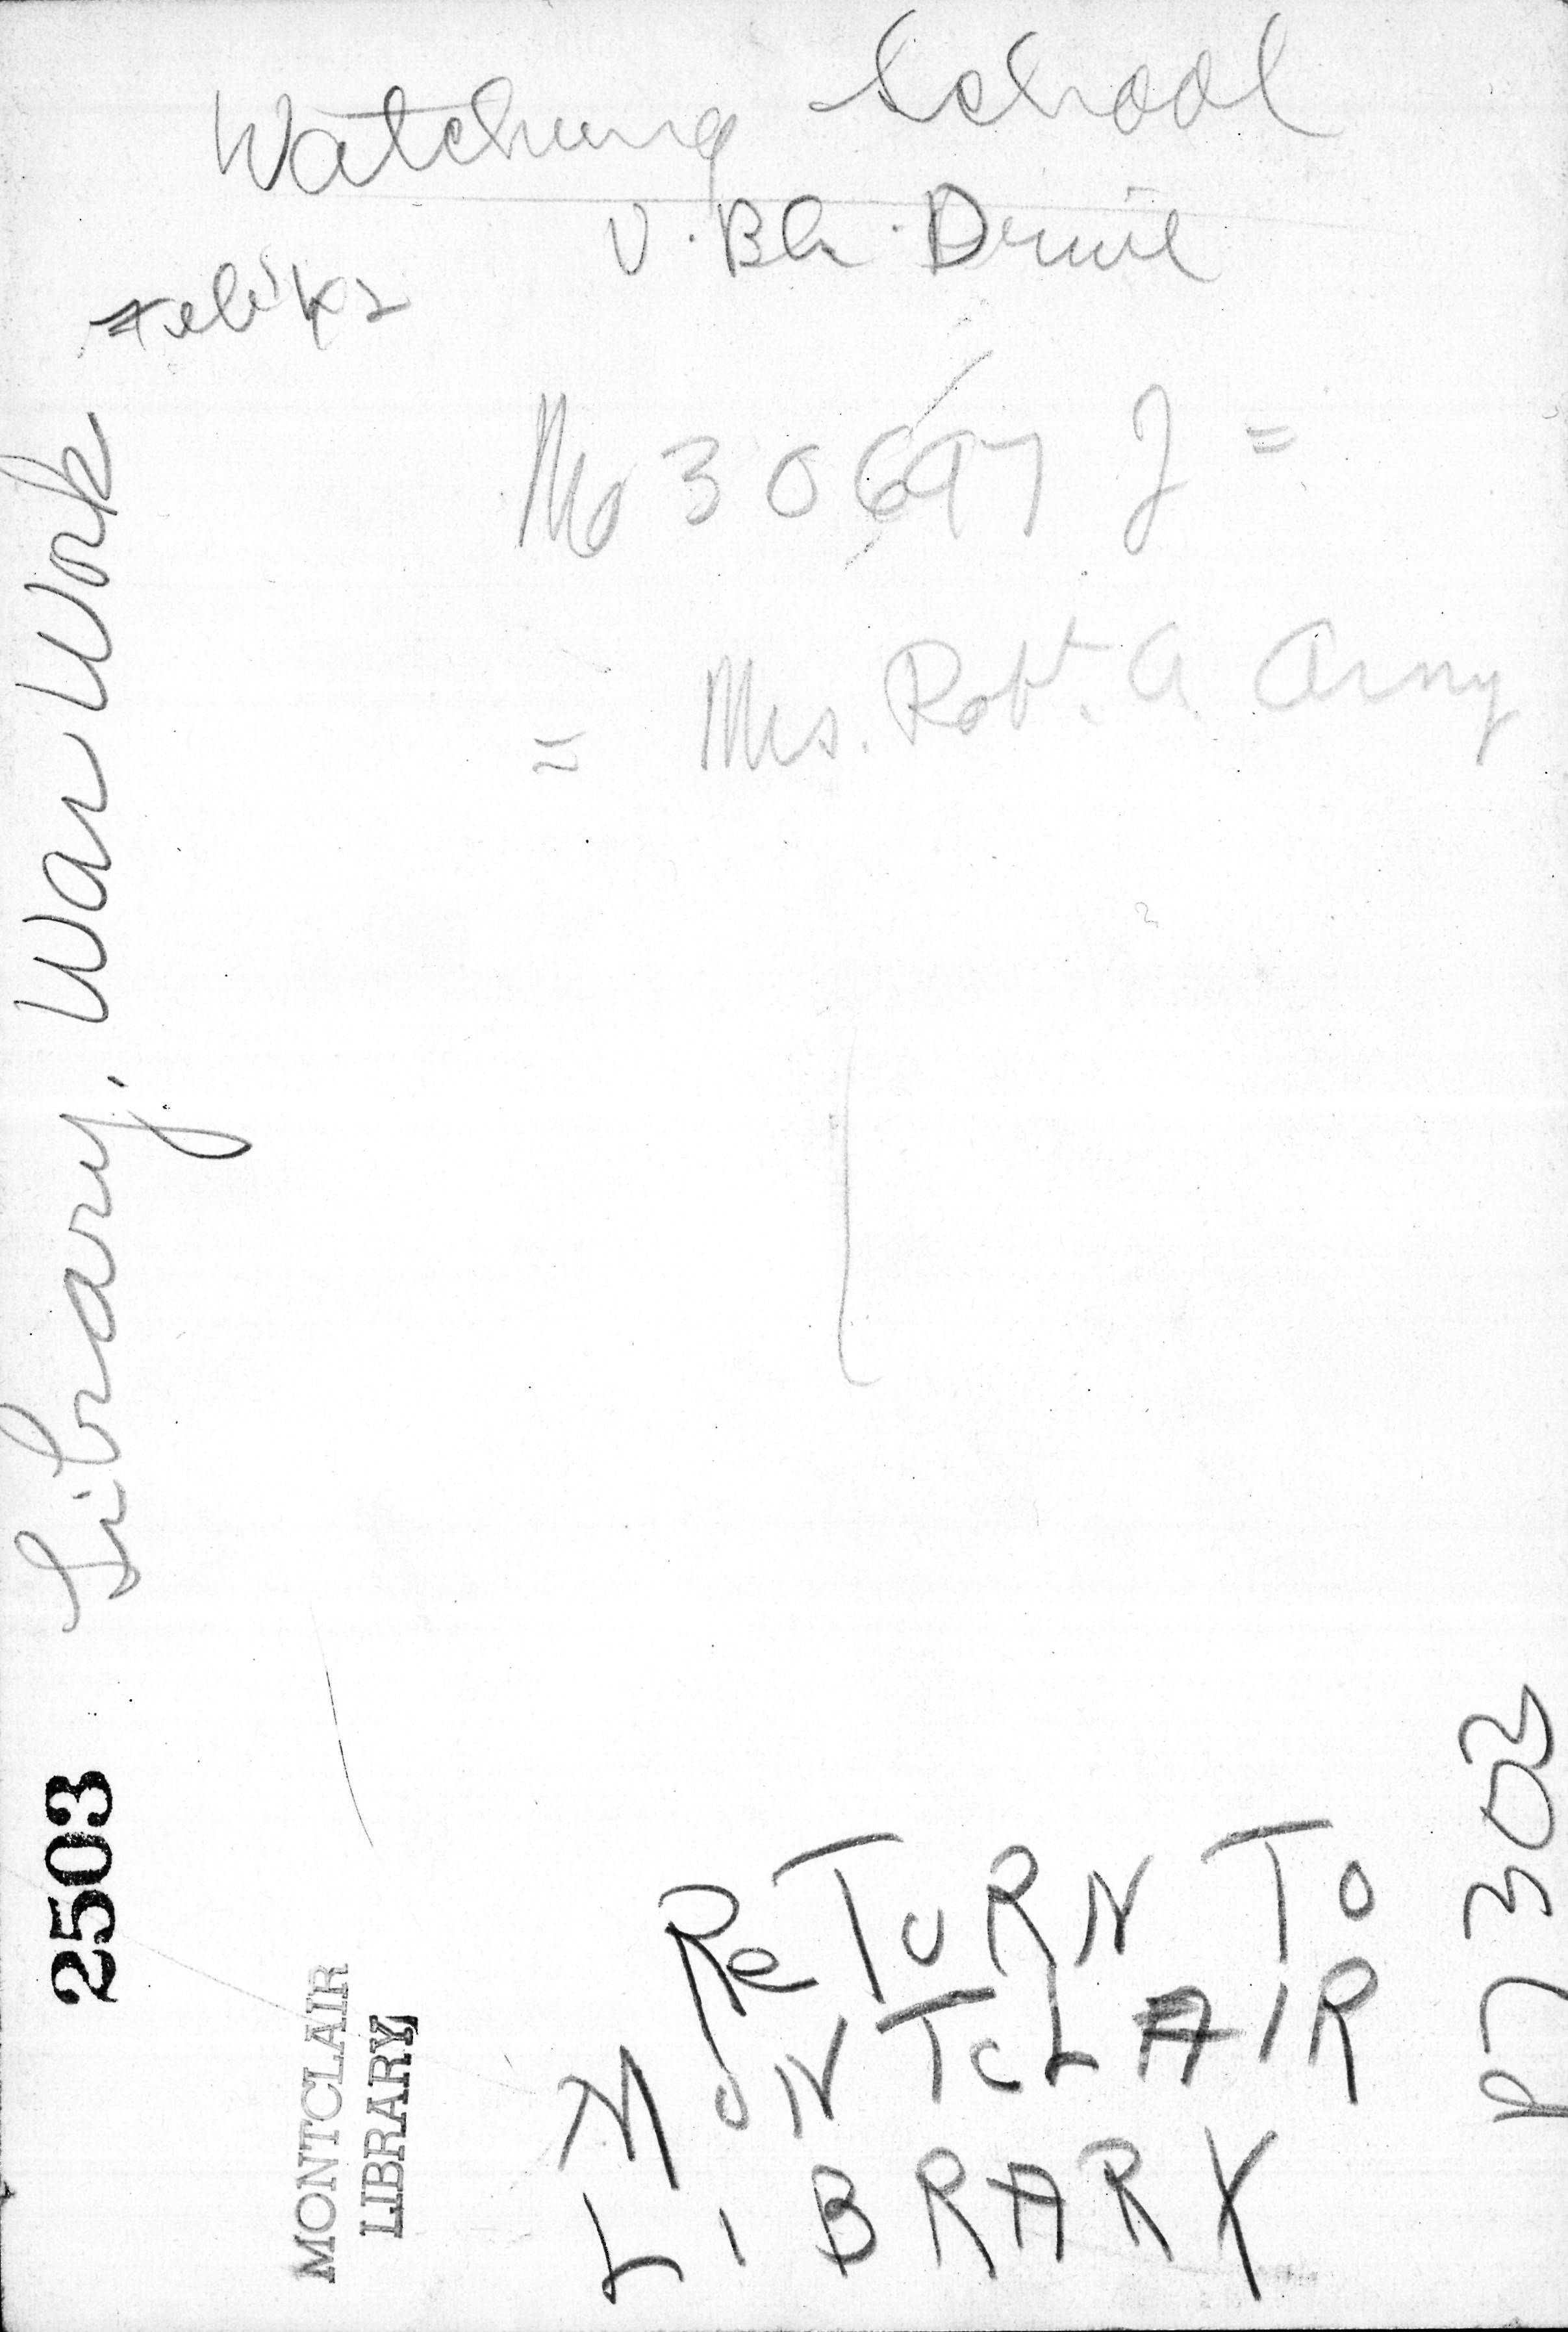 Watchung School
V. Bk. Drive
Mo 30697 J =
= Mrs. Robt. A. Arny
Library, War Work
2503
MONTCLAIR
LIBRARY
ReTURN TO
MONTCLAIR
LIBRARY
P7302